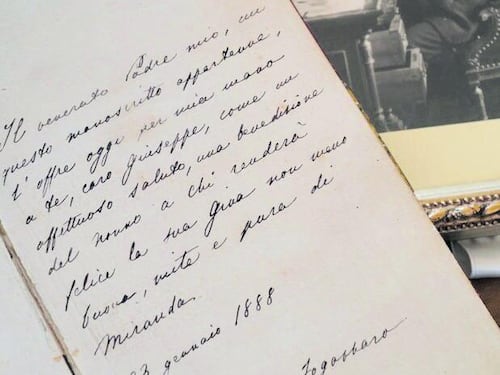 Il venerato Padre mio, cui
questo manoscritto appartenne,
l'offre oggi per mia mano
a te, caro Giuseppe, come un
affettuoso saluto, una benedizione
del nonno a chi renderà
felice la sua Gina non meno
buona, mite e pura di
Miranda.
23 gennaio 1888
Fogazzaro